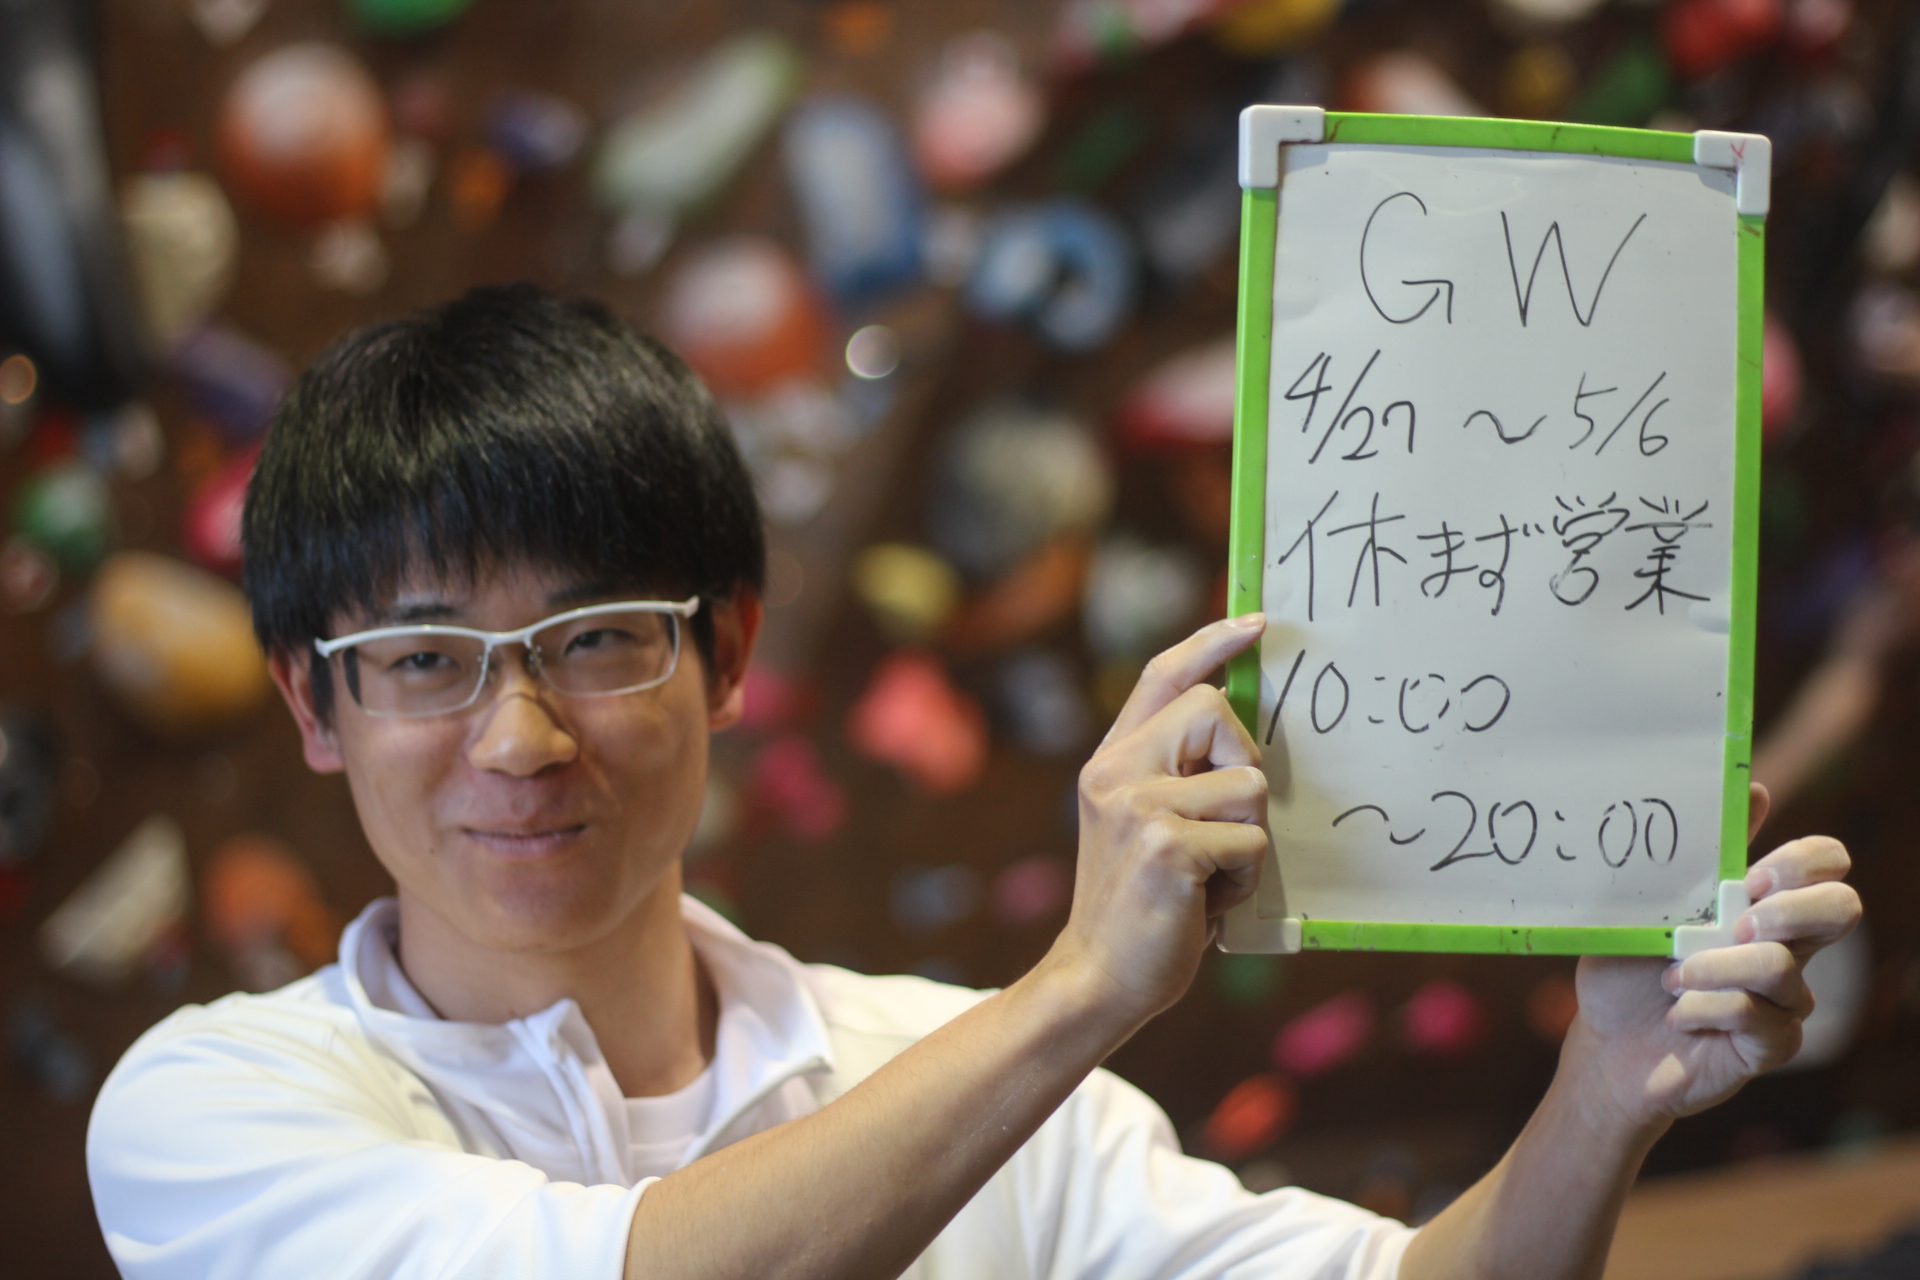 GW
4/27 〜 5/6
休まず営業
10:00
〜20:00